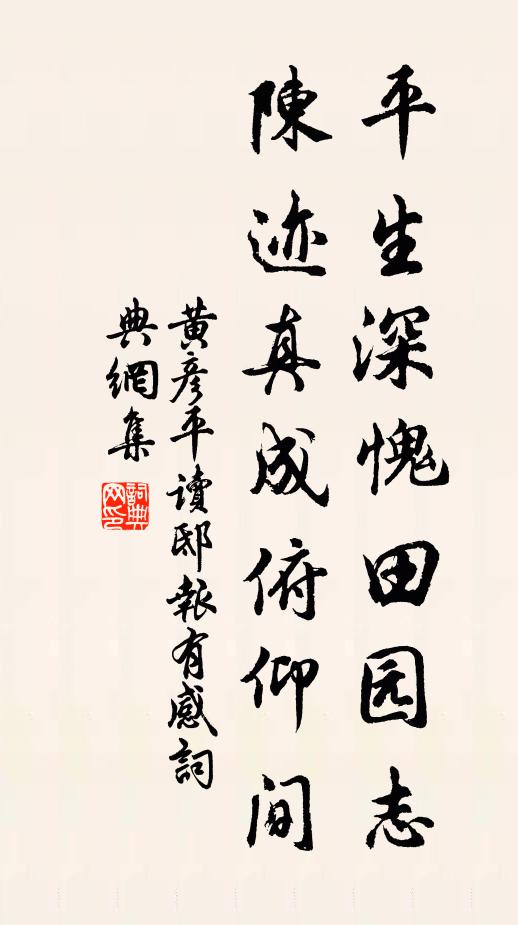 平生深愧田园志
陳迹真成俯仰间
黄彦平讀邸報有感詞
典網集
詞典
网印